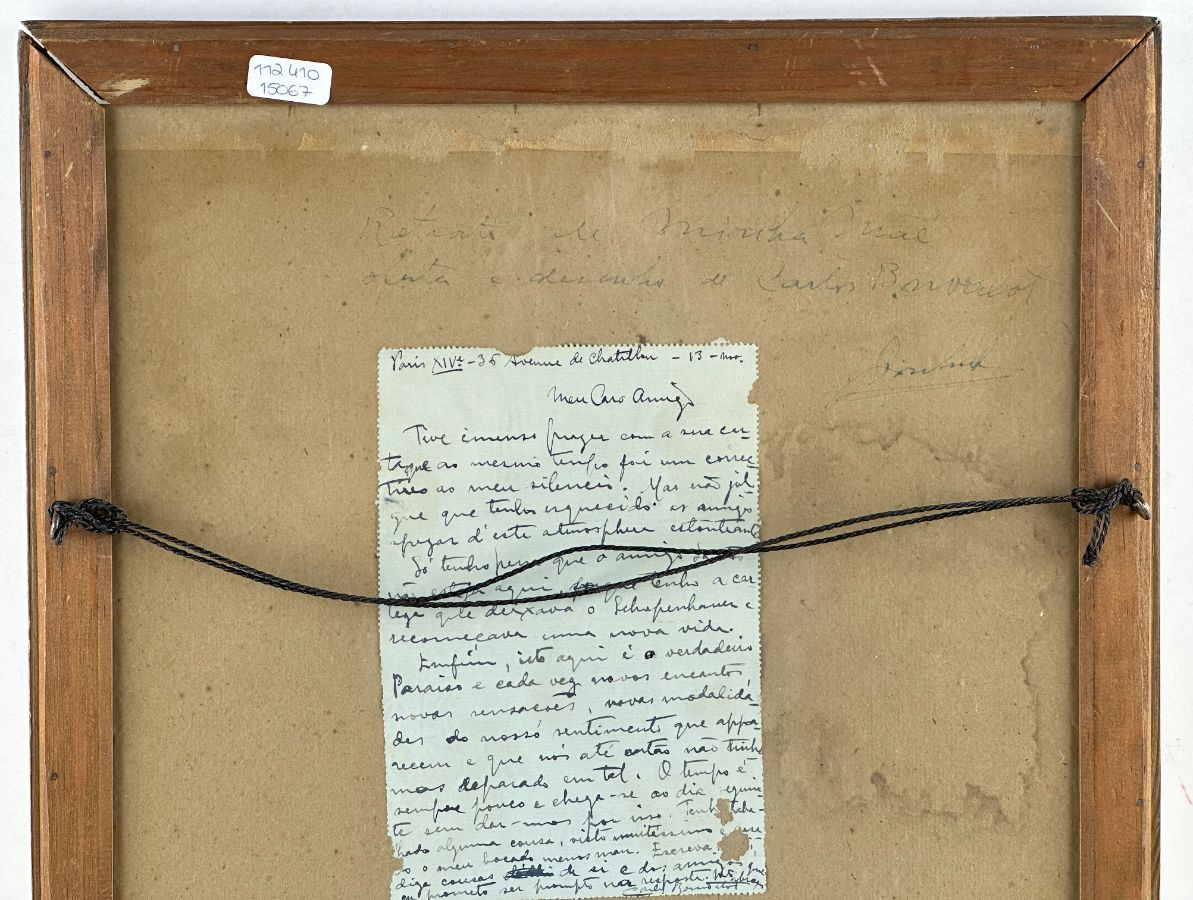 112410
15067
Retrato de Minha Mãe
e desenho de Carlos
Paris XIVe - 36 Avenue de Chatillon - 13 - nov.
Meu Caro Amigo
Tive imenso prazer com a sua car-
ta que ao mesmo tempo foi um correc-
tivo ao meu silencio. Mas não jul-
gue que tenho esquecido os amigos
apezar d'este atmosphera estonteante
Só tenho pena que o amigo
não esteja aqui, porque tenho a cer
teza que deixava o Schopenhauer e
recomeçava uma nova vida.
Emfim, isto aqui é o verdadeiro
Paraiso e cada vez novos encantos,
novas sensacões, novas modalida-
des do nosso sentimento que appa-
recem e que nós até então não tinha
mos deparado em tal. O tempo é
sempre pouco e chega-se ao dia seguin-
te sem dar-mos por isso. Tenho traba-
lhado alguma cousa, visto muitissimo e
o meu bocado menos mau. Escreva
diga cousas de si e dos amigos, que
eu prometo ser prompto na resposta.